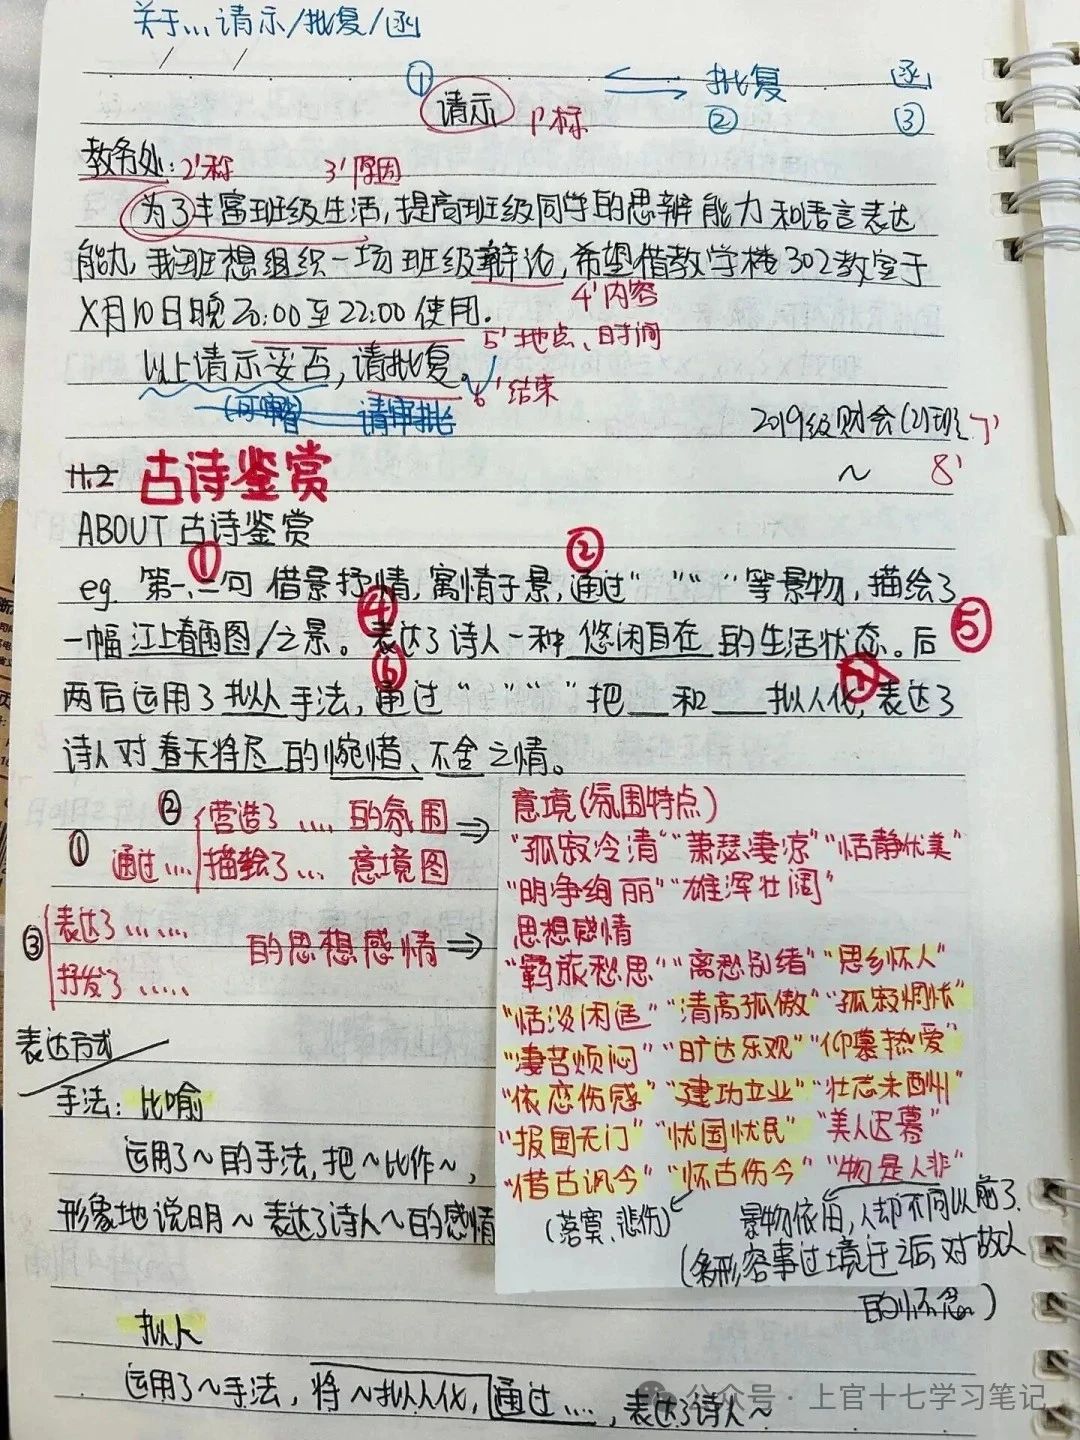 关于...请示/批复/函
① ←→ 批复 函
请示 1'标 ② ③
教务处: 2'称 3'原因
为了丰富班级生活,提高班级同学的思辨能力和语言表达
能力,我班想组织一场班级辩论,希望借教学楼302教室于
4'内容
X月10日晚20:00至22:00使用.
5'地点、时间
以上请示妥否,请批复。
6'结束
请审批
2019级财会(2)班 7'
~ 8'
11.2 古诗鉴赏
ABOUT 古诗鉴赏
① ②
eg. 第一、二句 借景抒情,寓情于景,通过“ ”“ ”“ ”等景物,描绘了
④ ⑤
一幅江上春雨图/之景。表达了诗人一种 悠闲自在 的生活状态。后
⑥
两后运用了拟人手法,通过“ ”“ ”“ ”把__和__拟人化,表达了
诗人对春天将尽的惋惜、不舍之情。
② 营造了....的氛围 ⇒
① 通过.... 描绘了... 意境图
③ 表达了...... 的思想感情 ⇒
抒发了.....
意境(氛围特点)
“孤寂冷清”“萧瑟凄凉”“恬静优美”
“明净绚丽”“雄浑壮阔”
思想感情
“羁旅愁思”“离愁别绪”“思乡怀人”
“恬淡闲适”“清高孤傲”“孤寂惆怅”
“凄苦烦闷”“旷达乐观”“仰慕热爱”
“依恋伤感”“建功立业”“壮志未酬”
“报国无门”“忧国忧民”“美人迟暮”
“借古讽今”“怀古伤今”“物是人非”
(落寞、悲伤)
景物依旧,人却不同以前了.
(多形容事过境迁之后,对故人
的怀念)
表达方式
手法: 比喻
运用了~的手法,把~比作~,
形象地说明~表达了诗人~的感情
拟人
运用了~手法,将~拟人化,通过....,表达了诗人~
公众号·上官十七学习笔记